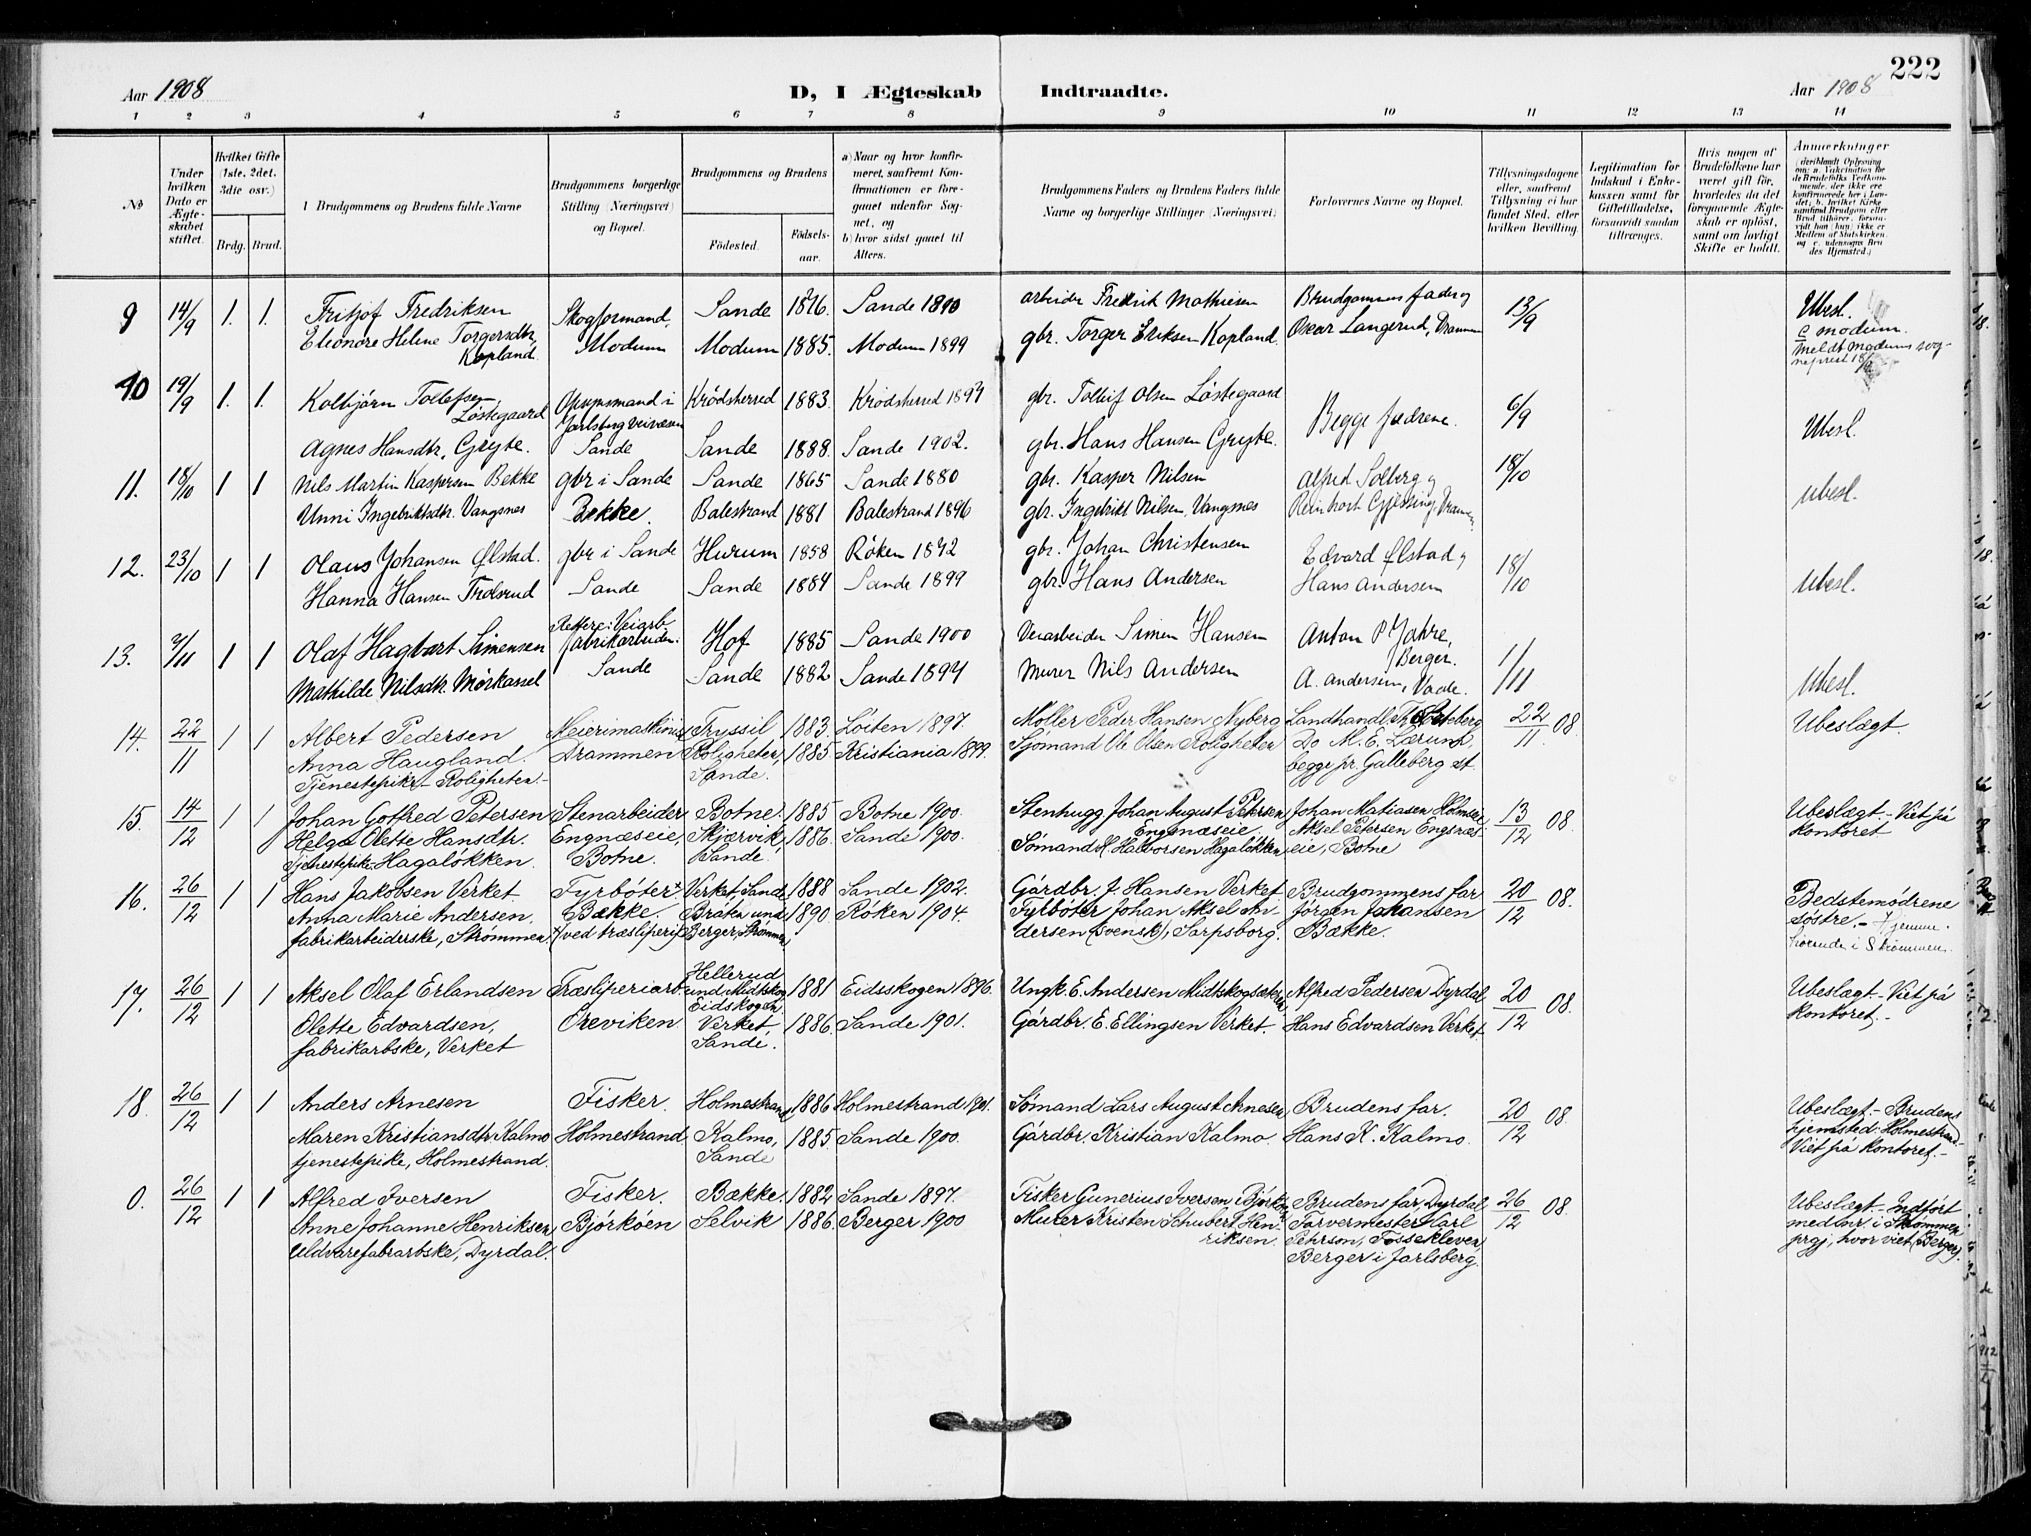 222
Aar 1908
D, I Ægteskab Indtraadte.
Aar 1908
1 2 3 4 5 6 7 8 9 10 11 12 13 14
No
Under hvilken Dato er Ægteskabet stiftet.
Hvilket Gifte (1ste. 2det. 3die osv.)
Brdg. Brud.
1 Brudgommens og Brudens fulde Navne
Brudgommens borgerlige Stilling (Næringsvei) og Bopæl.
Brudgommens og Brudens
Fødested.
Fødselsaar.
a) Naar og hvor konfirmeret, saafremt Konfirmationen er foregaaet udenfor Sognet, og
b) hvor sidst gaaet til Alters.
Brudgommens Faders og Brudens Faders fulde Navne og borgerlige Stillinger (Næringsvei)
Forlovernes Navne og Bopæl.
Tillysningsdagene eller, saafremt Tillysning ei har fundet Sted, efter hvilken Bevilling.
Legitimation for Indskud i Enkekassen samt for Giftetilladelse, forsaavidt saadan tiltrænges.
Hvis nogen af Brudefolkene har været gift før, hvorledes da det foregaaende Ægteskab er opløst, samt om lovligt Skifte er holdt.
Anmerkninger
9 14/9 1. 1. Fritjof Fredriksen Skogformand, Sande 1876. Sande 1890 arbeider Fredrik Mathiesen Brudgommens fader og 13/9 Ubesl.
Eleonore Helene Torgersdtr. Kopland. Modum Modum 1885. Modum 1899 gbr. Torger Eriksen Kopland. Oscar Langerud, Drammen c Modum.
meldt Modums sogneprest 18/9
10 19/9 1. 1. Kolbjørn Tollefsen Løstegaard Opsynsmand i Jarlsberg veivæsen Krødsherred 1883. Krødsherred 1897 gbr. Tollef Olsen Løstegaard Begge fædrene. 6/9 Ubesl.
Agnes Hansdtr. Gryte. Sande Sande 1888. Sande 1902. gbr. Hans Hansen Gryte.
11. 18/10 1 1 Nils Martin Kaspersen Bekke gbr i Sande Sande 1865 Sande 1880 gbr. Kasper Nilsen Alfred Solberg og 18/10 Ubesl.
Unni Ingebriktsdtr. Vangsnes Bekke. Balestrand 1881 Balestrand 1896 gbr. Ingebrikt Nilsen Vangsnes Reinhart Gjessing, Drammen
12. 23/10 1 1 Olaus Johansen Ølstad. gbr i Sande Hurum 1858 Røken 1872 gbr. Johan Christensen Edvard Ølstad og 18/10 Ubesl.
Hanna Hansen Trolsrud Sande Sande 1884 Sande 1899 gbr. Hans Andersen Hans Andersen
13. 7/11 1 1 Olaf Hagbart Simensen Rettere: Veiarb fabrikarbeider. Hof 1885 Sande 1900 Veiarbeider Simen Hansen Anton P Jahre, Berger. 1/11 Ubesl.
Mathilde Nilsdtr. Mørkassel Sande Sande 1882 Sande 1897 Murer Nils Andersen A. Andersen, Vaale.
14. 22/11 1 1 Albert Pedersen Meierimaskinist Tryssil 1883. Løiten 1897. Møller Peder Hansen Nyberg Landhandl. 22/11 08. Ubeslægt.
Anna Haugland. Drammen Roligheten, 1885 Kristiania 1899. Sjømand Ole Olsen Roligheten Do M. E. Lærum,
Tjenestepike Roligheten. Sande. begge pr. Galleberg st.
15. 14/12 1 1 Johan Gotfred Petersen Stenarbeider Botne. 1885 Botne 1900. Stenhugg. Johan August Petersen Johan Matiasen Holmen 13/12 08. Ubeslægt. Viet på
Helga Olette Hansdtr. Engnæseie, Skjærvik, 1886. Sande 1900. Engnæseie Aksel Petersen Engnæs- kontoret
Tjenestepike Hagaløkken. Botne. Sande. Sømand H Halvorsen Hagaløkken eie, Botne
16. 26/12 1 1 Hans Jakobsen Verket Fyrbøter x Verket, Sande 1888 Sande 1902. Gårdbr. J. Hansen Verket Brudgommens far 20/12 08. Bedstemødrene
Anna Marie Andersen, Bække. Bråten und 1890 Røken 1904. Fyrbøter Johan Aksel An- Jörgen Johansen søstre. Hjemme-
fabrikarbeiderske, Strømmen x ved træsliperi Berger, Strømmen dersen (svensk), Sarpsborg. Bække. hørende i Strømmen.
17. 26/12 1 1 Aksel Olaf Erlandsen Træsliperiarb. Hellerud und Midtskog Eidskogen 1881 Eidsskogen 1896. Ungk. E. Andersen Midtskogsæteren Alfred Pedersen Dyrdal 20/12 08. Ubeslægt. Viet på
Olette Edvardsen, Øreviken Verket, 1886. Sande 1901. Gårdbr. E. Ellingsen Verket. Hans Edvardsen Verket. kontoret.
fabrikarbske, Verket Sande.
18. 26/12 1 1 Anders Arnesen Fisker. Holmestrand 1886 Holmestrand 1901. Sømand Lars August Arnesen Brudens far. 20/12 08. Ubeslægt. Brudens
Maren Kristiansdtr Kalmo Holmestrand Kalmo, 1885. Sande 1900. Gårdbr. Kristian Kalmo. Hans K. Kalmo. hjemsted: Holmestrand.
tjenestepike, Holmestrand. Sande Viet på kontoret.
0. 26/12 1 1 Alfred Iversen Fisker. Bække. 1882 Sande 1897. Fisker Gunerius Iversen Bjørkøen Brudens far, Dyrdal 26/12 08. Ubeslægt. Indført
Anne Johanne Henriksen Bjørkøen Selvik 1886. Berger 1900 Murer Kristen Schubert Hen- Farvermester Karl med nr. i Strømmen
Uldvarefabrarbske, Dyrdal. riksen. Pehrson, Fossekleven, prgj, hvor viet (Berger).
Berger i Jarlsberg.